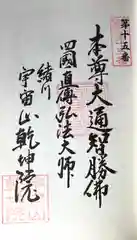 第十五番
本尊大通智勝佛
四國直傳弘法大師
結川
宇宙山乾坤院